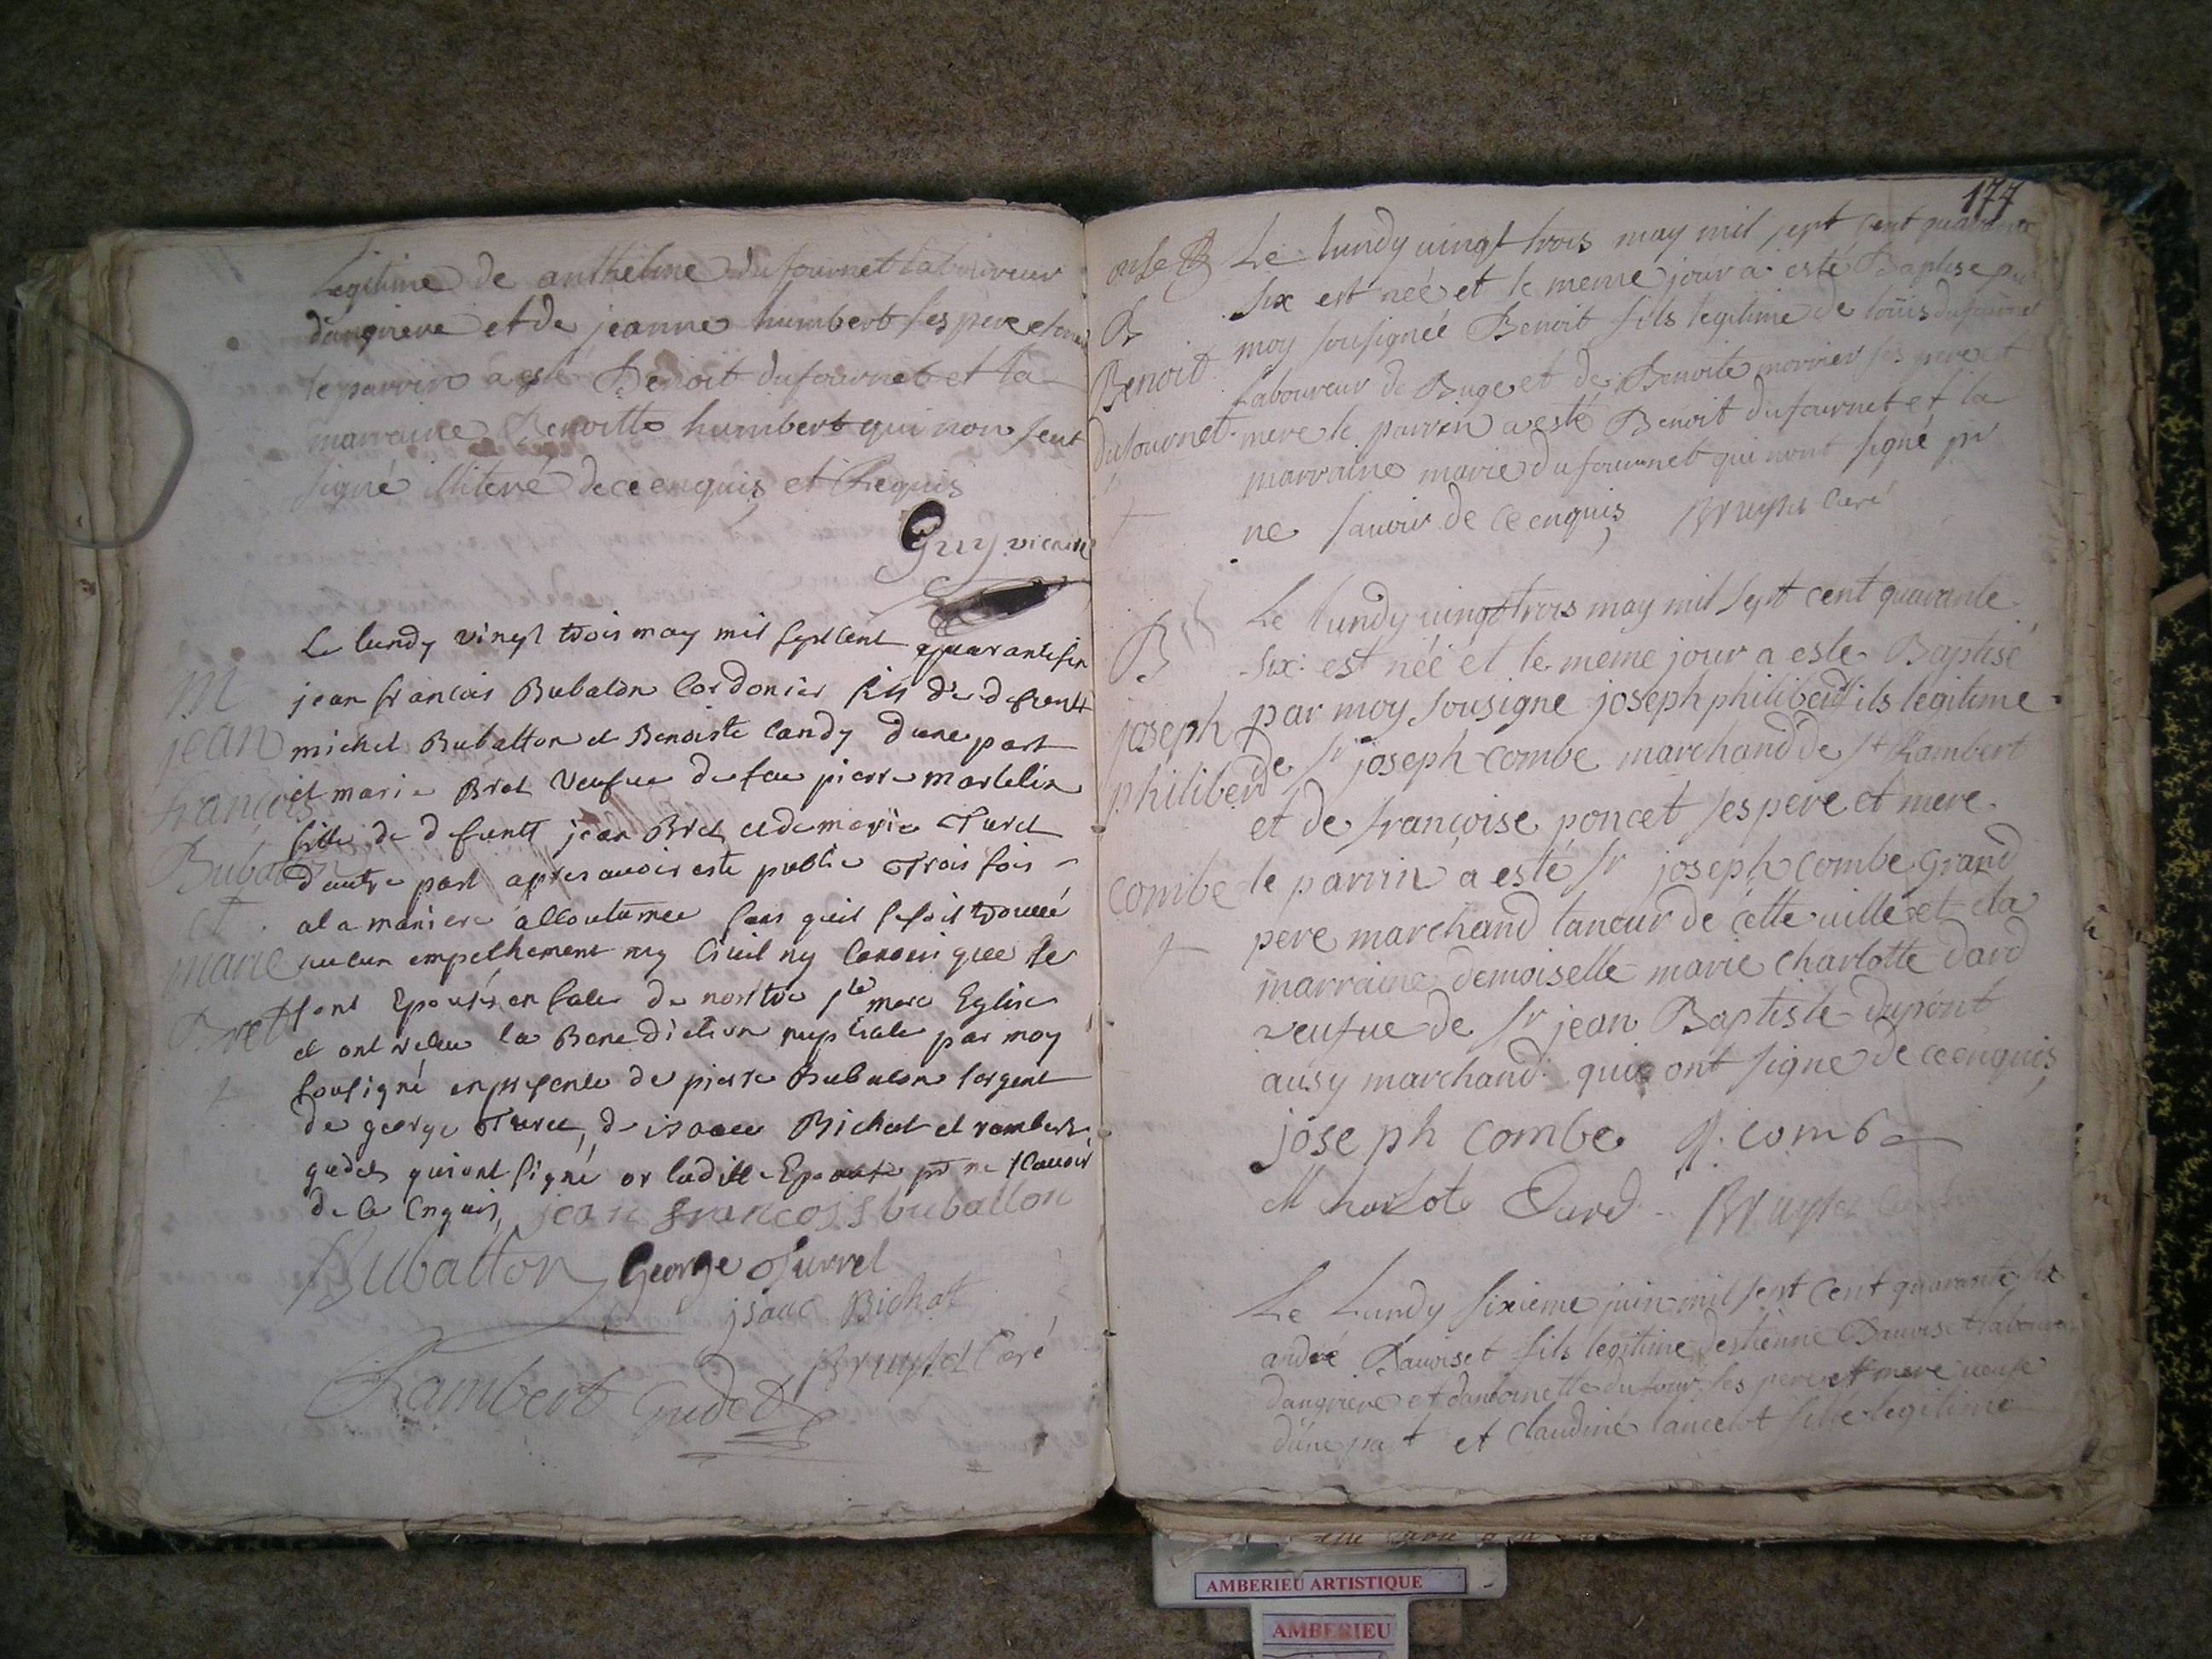 Legitime de anthelme dufournet laboureur
dangrieve et de jeanne humbert ses pere et mere
le parrin a esté Benoit dufournet et la
marraine Benoitte humbert qui non seut
signé illiteré de ce enquis et Requis
Guy vicaire
M
jean
françois
Bubaton
et
marie
Bret
Le lundy vingt trois may mil sept cent quarante six
jean francois Bubaton Cordonier fils de defunt
michel Bubatton et Benoiste Candy dune part
et marie Bret Veufue de feu pierre martelin
fille de defunt jean Bret et de marie Turel
dautre part apres auoir esté publié Trois fois
a la maniere accoutumée sans quil se soit trouué
aucun empechement ny Ciuil ny Canonique se
sont Epousés en face de nostre ste mere Eglise
et ont receu la Benediction nuptiale par moy
sousigné en presence de pierre Bubaton sergent
de george Turel, d isaac Bichat et rambert
gudet qui ont signé or ladite Epouse pr ne scauoir
de ce Enquis, jean françois bubatton
Bubatton George Turrel
jsaac Bichat
Rambert Gudet Bruyset Curé
177
B
Benoit
dufournet
Le lundy uingt trois may mil sept cent quarante
six est néé et le meme jour a esté Baptisé par
moy sousignéé Benoit fils legitime de loüis dufournet
laboureur de Buge et de Benoite morrier ses pere et
mere le parrin a esté Benoit dufournet et la
marraine marie dufournet qui nont signé pr
ne sauoir de ce enquis Bruyset Curé
B
joseph
philiberd
combe
Le lundy uingt trois may mil sept cent quarante
six est néé et le meme jour a esté Baptisé
par moy sousigne joseph philiberd fils legitime
de sr joseph combe marchand de st Rambert
et de françoise poncet ses pere et mere
le parrin a esté sr joseph combe grand
pere marchand taneur de cette uille et la
marraine demoiselle marie charlotte dard
veufue de sr jean Baptiste dupont
ausy marchand qui ont signe de ce enquis,
joseph combe J. combe
M harlote Dard Bruyset
Le Lundy sixieme juin mil sept cent quarante six
andré Bauiset fils legitime destienne Bauiset laboureur
dangrieve et dantoinette dufour ses pere et mere
dune part et claudine lancelot fille legitime
AMBERIEU ARTISTIQUE
AMBERIEU